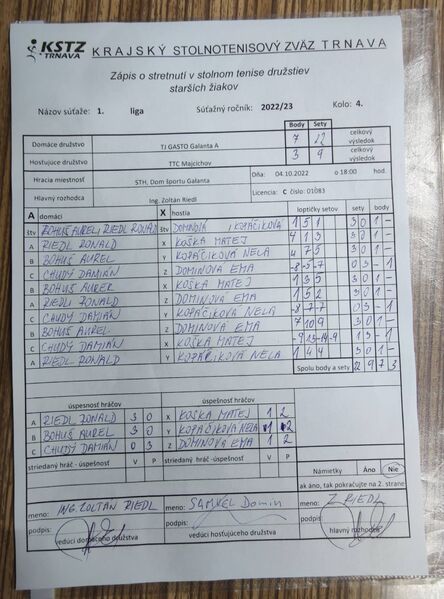 KSTZ TRNAVA KRAJSKÝ STOLNOTENISOVÝ ZVÄZ TRNAVA
Zápis o stretnutí v stolnom tenise družstiev
starších žiakov
Názov súťaže: 1. liga Súťažný ročník: 2022/23 Kolo: 4.
Body Sety
Domáce družstvo TJ GASTO Galanta A 7 22 celkový výsledok
Hosťujúce družstvo TTC Majcichov 3 9 celkový výsledok
Hracia miestnosť STH, Dom športu Galanta Dňa: 04.10.2022 o 18:00 hod.
Hlavný rozhodca Ing. Zoltán Riedl Licencia: C číslo: 01083
A domáci X hostia loptičky setov sety body
štv BOHUŠ AUREL RIEDL RONALD štv DOMINOVÁ KOPÁČIKOVÁ 1 5 1 3 0 1 -
A RIEDL RONALD X KOŠKA MATEJ 4 1 3 3 0 1 -
B BOHUŠ AUREL Y KOPÁČIKOVÁ NELA 4 7 5 3 0 1 -
C CHUDÝ DAMIÁN Z DOMINOVA EMA -8 -5 -7 0 3 - 1
B BOHUŠ AUREL X KOŠKA MATEJ 1 3 5 3 0 1 -
A RIEDL RONALD Z DOMINOVA EMA 1 5 2 3 0 1 -
C CHUDÝ DAMIÁN Y KOPÁČIKOVÁ NELA -8 -7 -7 0 3 - 1
B BOHUŠ AUREL Z DOMINOVA EMA 7 10 9 3 0 1 -
C CHUDÝ DAMIÁN X KOŠKA MATEJ 1 3 - 1
A RIEDL RONALD Y KOPÁČIKOVÁ NELA 1 4 4 3 0 1 -
Spolu body a sety 22 9 7 3
úspešnosť hráčov úspešnosť hráčov
A RIEDL RONALD 3 0 X KOŠKA MATEJ 1 2
B BOHUŠ AUREL 3 0 Y KOPÁČIKOVÁ NELA 1 2
C CHUDÝ DAMIÁN 0 3 Z DOMINOVA EMA 1 2
striedaný hráč - úspešnosť V P striedaný hráč - úspešnosť V P
Námietky Áno Nie
ak áno, tak pokračujte na 2. strane
meno: ING. ZOLTÁN RIEDL meno: SAMUEL Domin meno: Z RIEDL
podpis: podpis: podpis:
vedúci domáceho družstva vedúci hosťujúceho družstva hlavný rozhodca